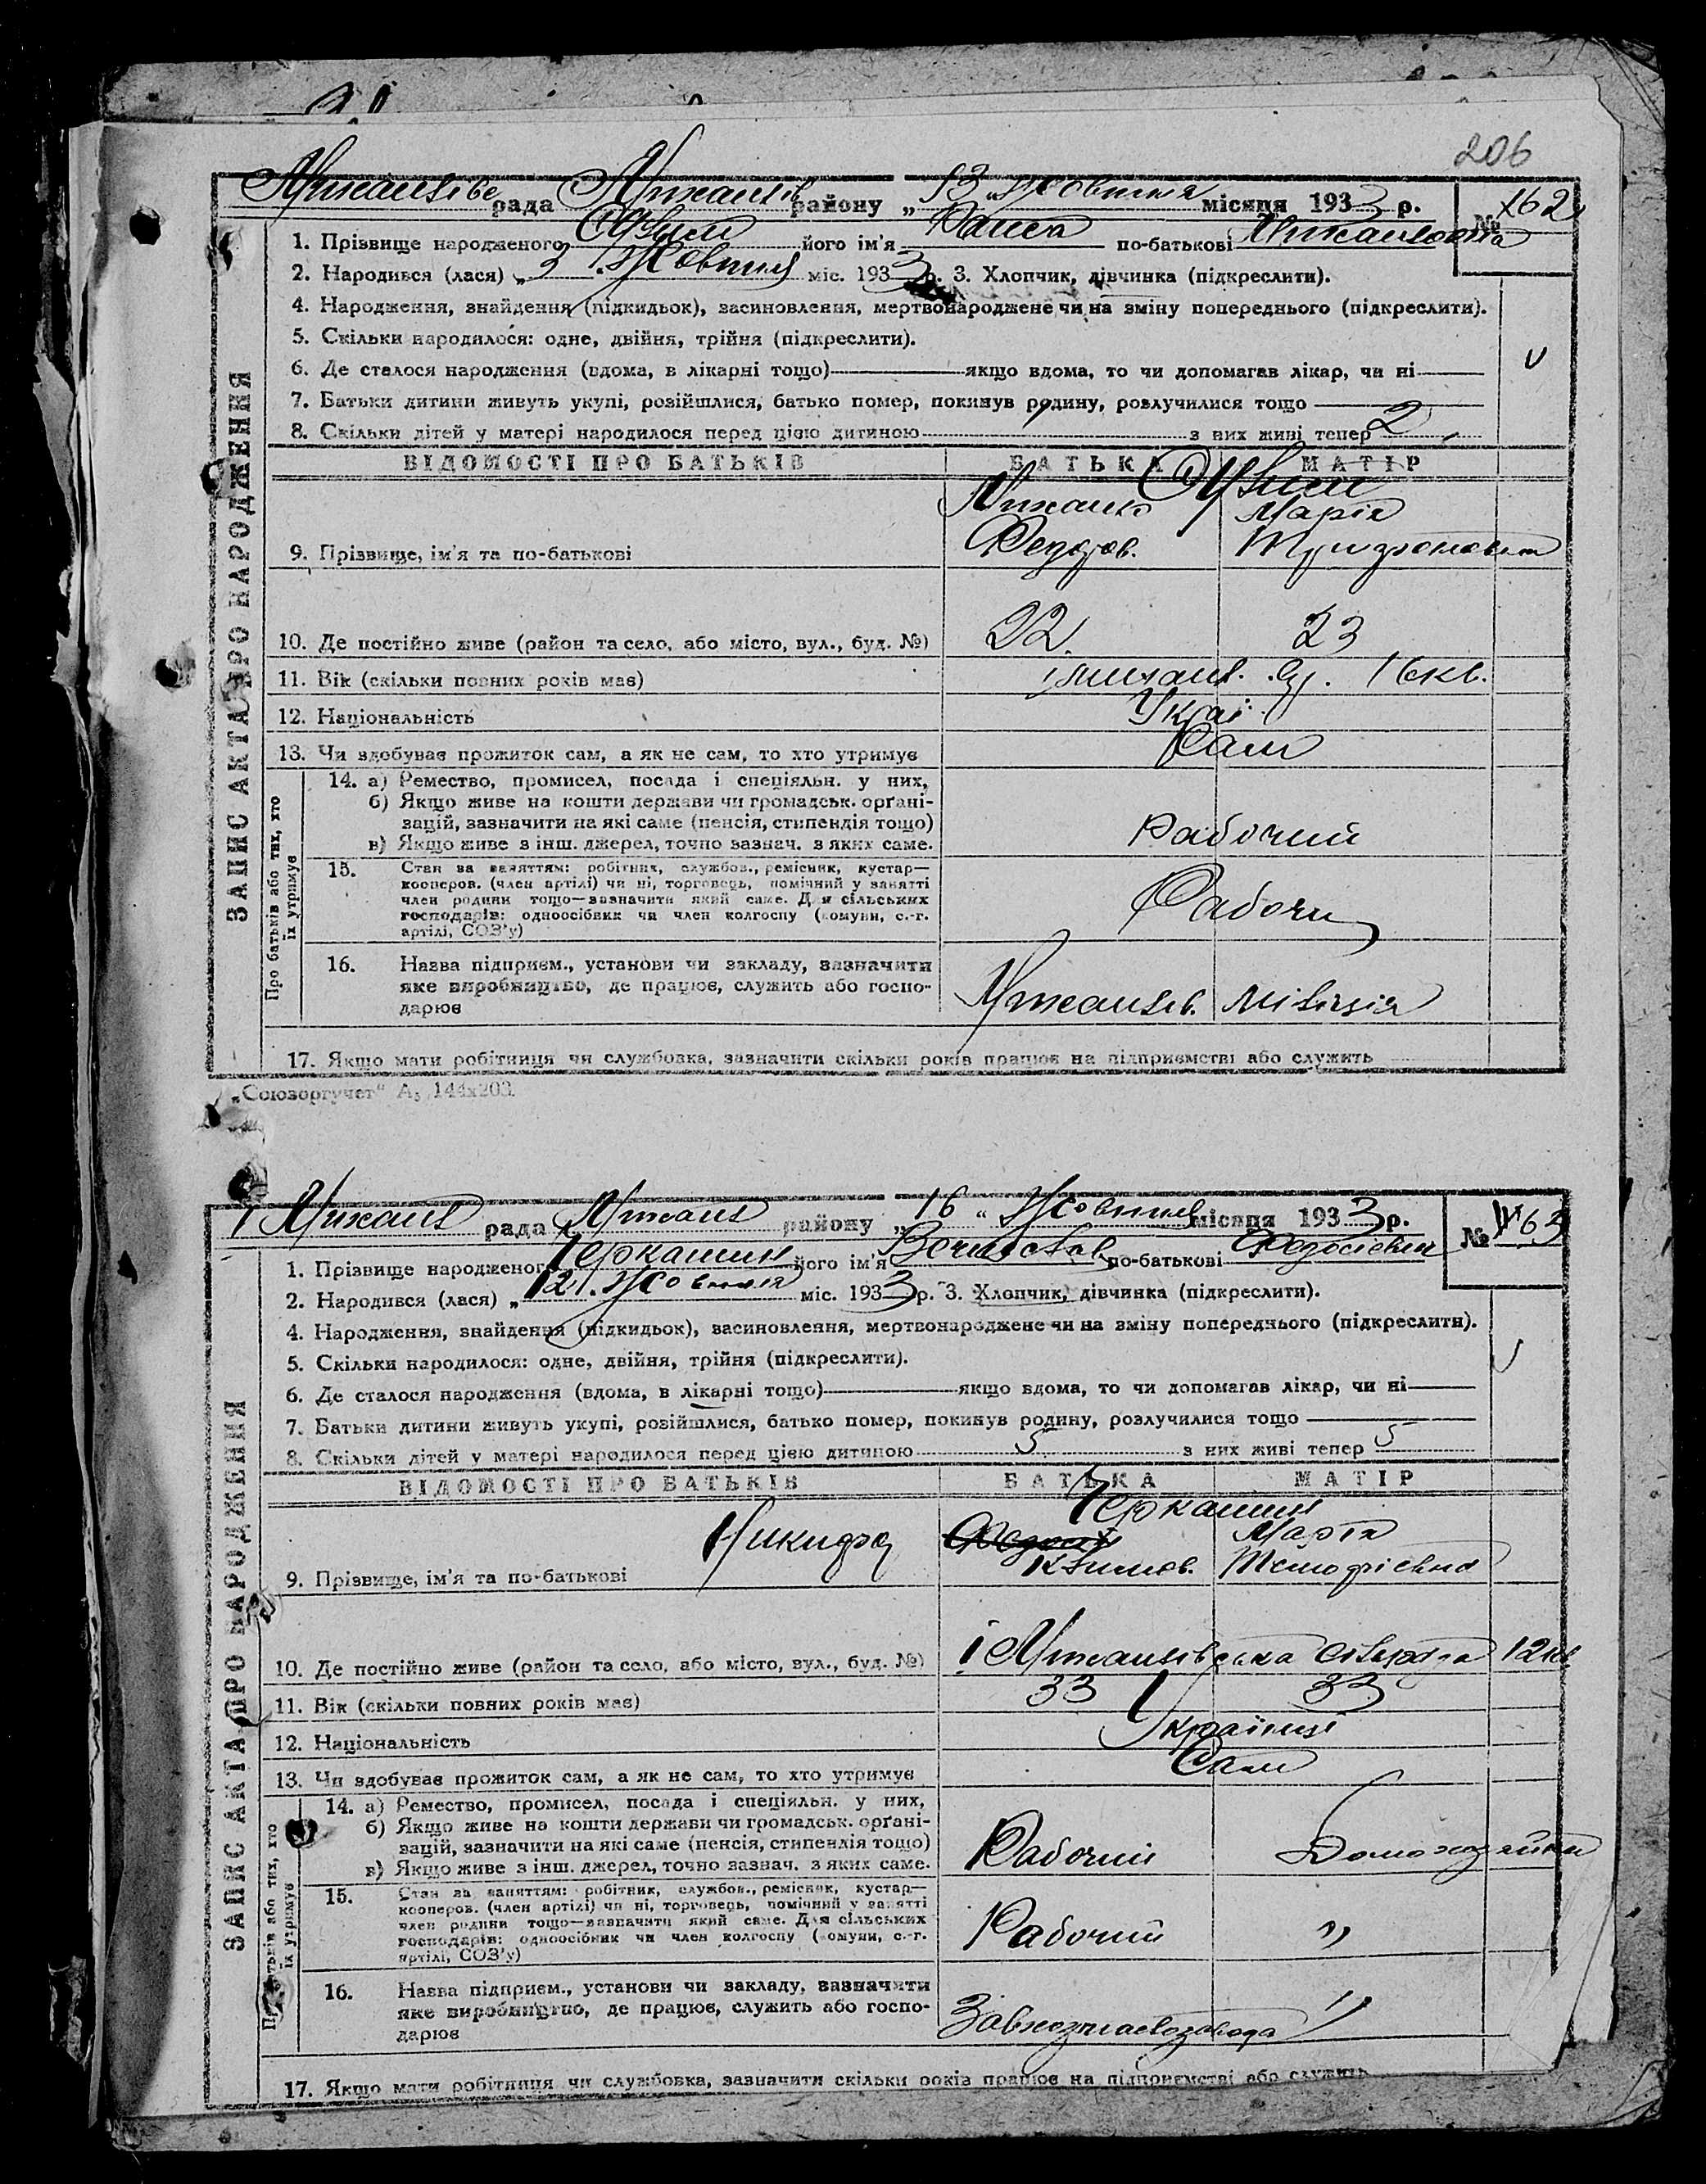 206
рада району „13 „ Жовтня місяця 1933 р. № 162
1. Прізвище народженого його ім'я Раиса по-батькові
2. Народився (лася) „3 Жовтня міс. 1933 р. 3. Хлопчик, дівчинка (підкреслити).
4. Народження, знайдення (підкидьок), засиновлення, мертвонароджене чи на зміну попереднього (підкреслити).
5. Скільки народилося: одне, двійня, трійня (підкреслити).
6. Де сталося народження (вдома, в лікарні тощо) якщо вдома, то чи допомагав лікар, чи ні
7. Батьки дитини живуть укупі, розійшлися, батько помер, покинув родину, розлучилися тощо
8. Скільки дітей у матері народилося перед цією дитиною з них живі тепер 2
ВІДОМОСТІ ПРО БАТЬКІВ БАТЬКА МАТІР
Марія
9. Прізвище, ім'я та по-батькові Федоров.
10. Де постійно живе (район та село, або місто, вул., буд. №) 22 23
11. Вік (скільки повних років має) 16 кв.
12. Національність Украї
13. Чи здобуває прожиток сам, а як не сам, то хто утримує Сам
14. а) Ремество, промисел, посада і спеціяльн. у них,
б) Якщо живе на кошти держави чи громадськ. орґані-
зацій, зазначити на які саме (пенсія, стипендія тощо)
в) Якщо живе з інш. джерел, точно зазнач. з яких саме. Рабочий
15. Стан за заняттям: робітник, службов., ремісник, кустар—
кооперов. (член артілі) чи ні, торговець, помічний у занятті
член родини тощо—зазначити який саме. Для сільських
господарів: одноосібник чи член колгоспу (комуни, с.-г.
артілі, СОЗ'у) Рабочи
16. Назва підприєм., установи чи закладу, зазначити
яке виробництво, де працює, служить або госпо-
дарює Міліція
17. Якщо мати робітниця чи службовка, зазначити скільки років працює на підприємстві або служить
ЗАПИС АКТА ПРО НАРОДЖЕННЯ
Про батьків або тих, хто
їх утримує
„Союзоргучет“ А5 144х203
рада району „16 “ Жовтня місяця 1933 р. № 163
1. Прізвище народженого Черкашин його ім'я Вечаслав по-батькові Федосієвич
2. Народився (лася) „12 Жовтня міс. 1933 р. 3. Хлопчик, дівчинка (підкреслити).
4. Народження, знайдення (підкидьок), засиновлення, мертвонароджене чи на зміну попереднього (підкреслити).
5. Скільки народилося: одне, двійня, трійня (підкреслити).
6. Де сталося народження (вдома, в лікарні тощо) якщо вдома, то чи допомагав лікар, чи ні
7. Батьки дитини живуть укупі, розійшлися, батько помер, покинув родину, розлучилися тощо
8. Скільки дітей у матері народилося перед цією дитиною 5 з них живі тепер 5
ВІДОМОСТІ ПРО БАТЬКІВ БАТЬКА МАТІР
Черкашин
Никифор Марія
9. Прізвище, ім'я та по-батькові Климов.
10. Де постійно живе (район та село, або місто, вул., буд. №) 12 кв
11. Вік (скільки повних років має) 33 33
12. Національність Українці
13. Чи здобуває прожиток сам, а як не сам, то хто утримує Сами
14. а) Ремество, промисел, посада і спеціяльн. у них,
б) Якщо живе на кошти держави чи громадськ. орґані-
зацій, зазначити на які саме (пенсія, стипендія тощо)
в) Якщо живе з інш. джерел, точно зазнач. з яких саме. Рабочий Домохазяйка
15. Стан за заняттям: робітник, службов., ремісник, кустар—
кооперов. (член артілі) чи ні, торговець, помічний у занятті
член родини тощо—зазначити який саме. Для сільських
господарів: одноосібник чи член колгоспу (комуни, с.-г.
артілі, СОЗ'у) Рабочий "
16. Назва підприєм., установи чи закладу, зазначити
яке виробництво, де працює, служить або госпо-
дарює "
17. Якщо мати робітниця чи службовка, зазначити скільки років працює на підприємстві або служить
ЗАПИС АКТА ПРО НАРОДЖЕННЯ
Про батьків або тих, хто
їх утримує